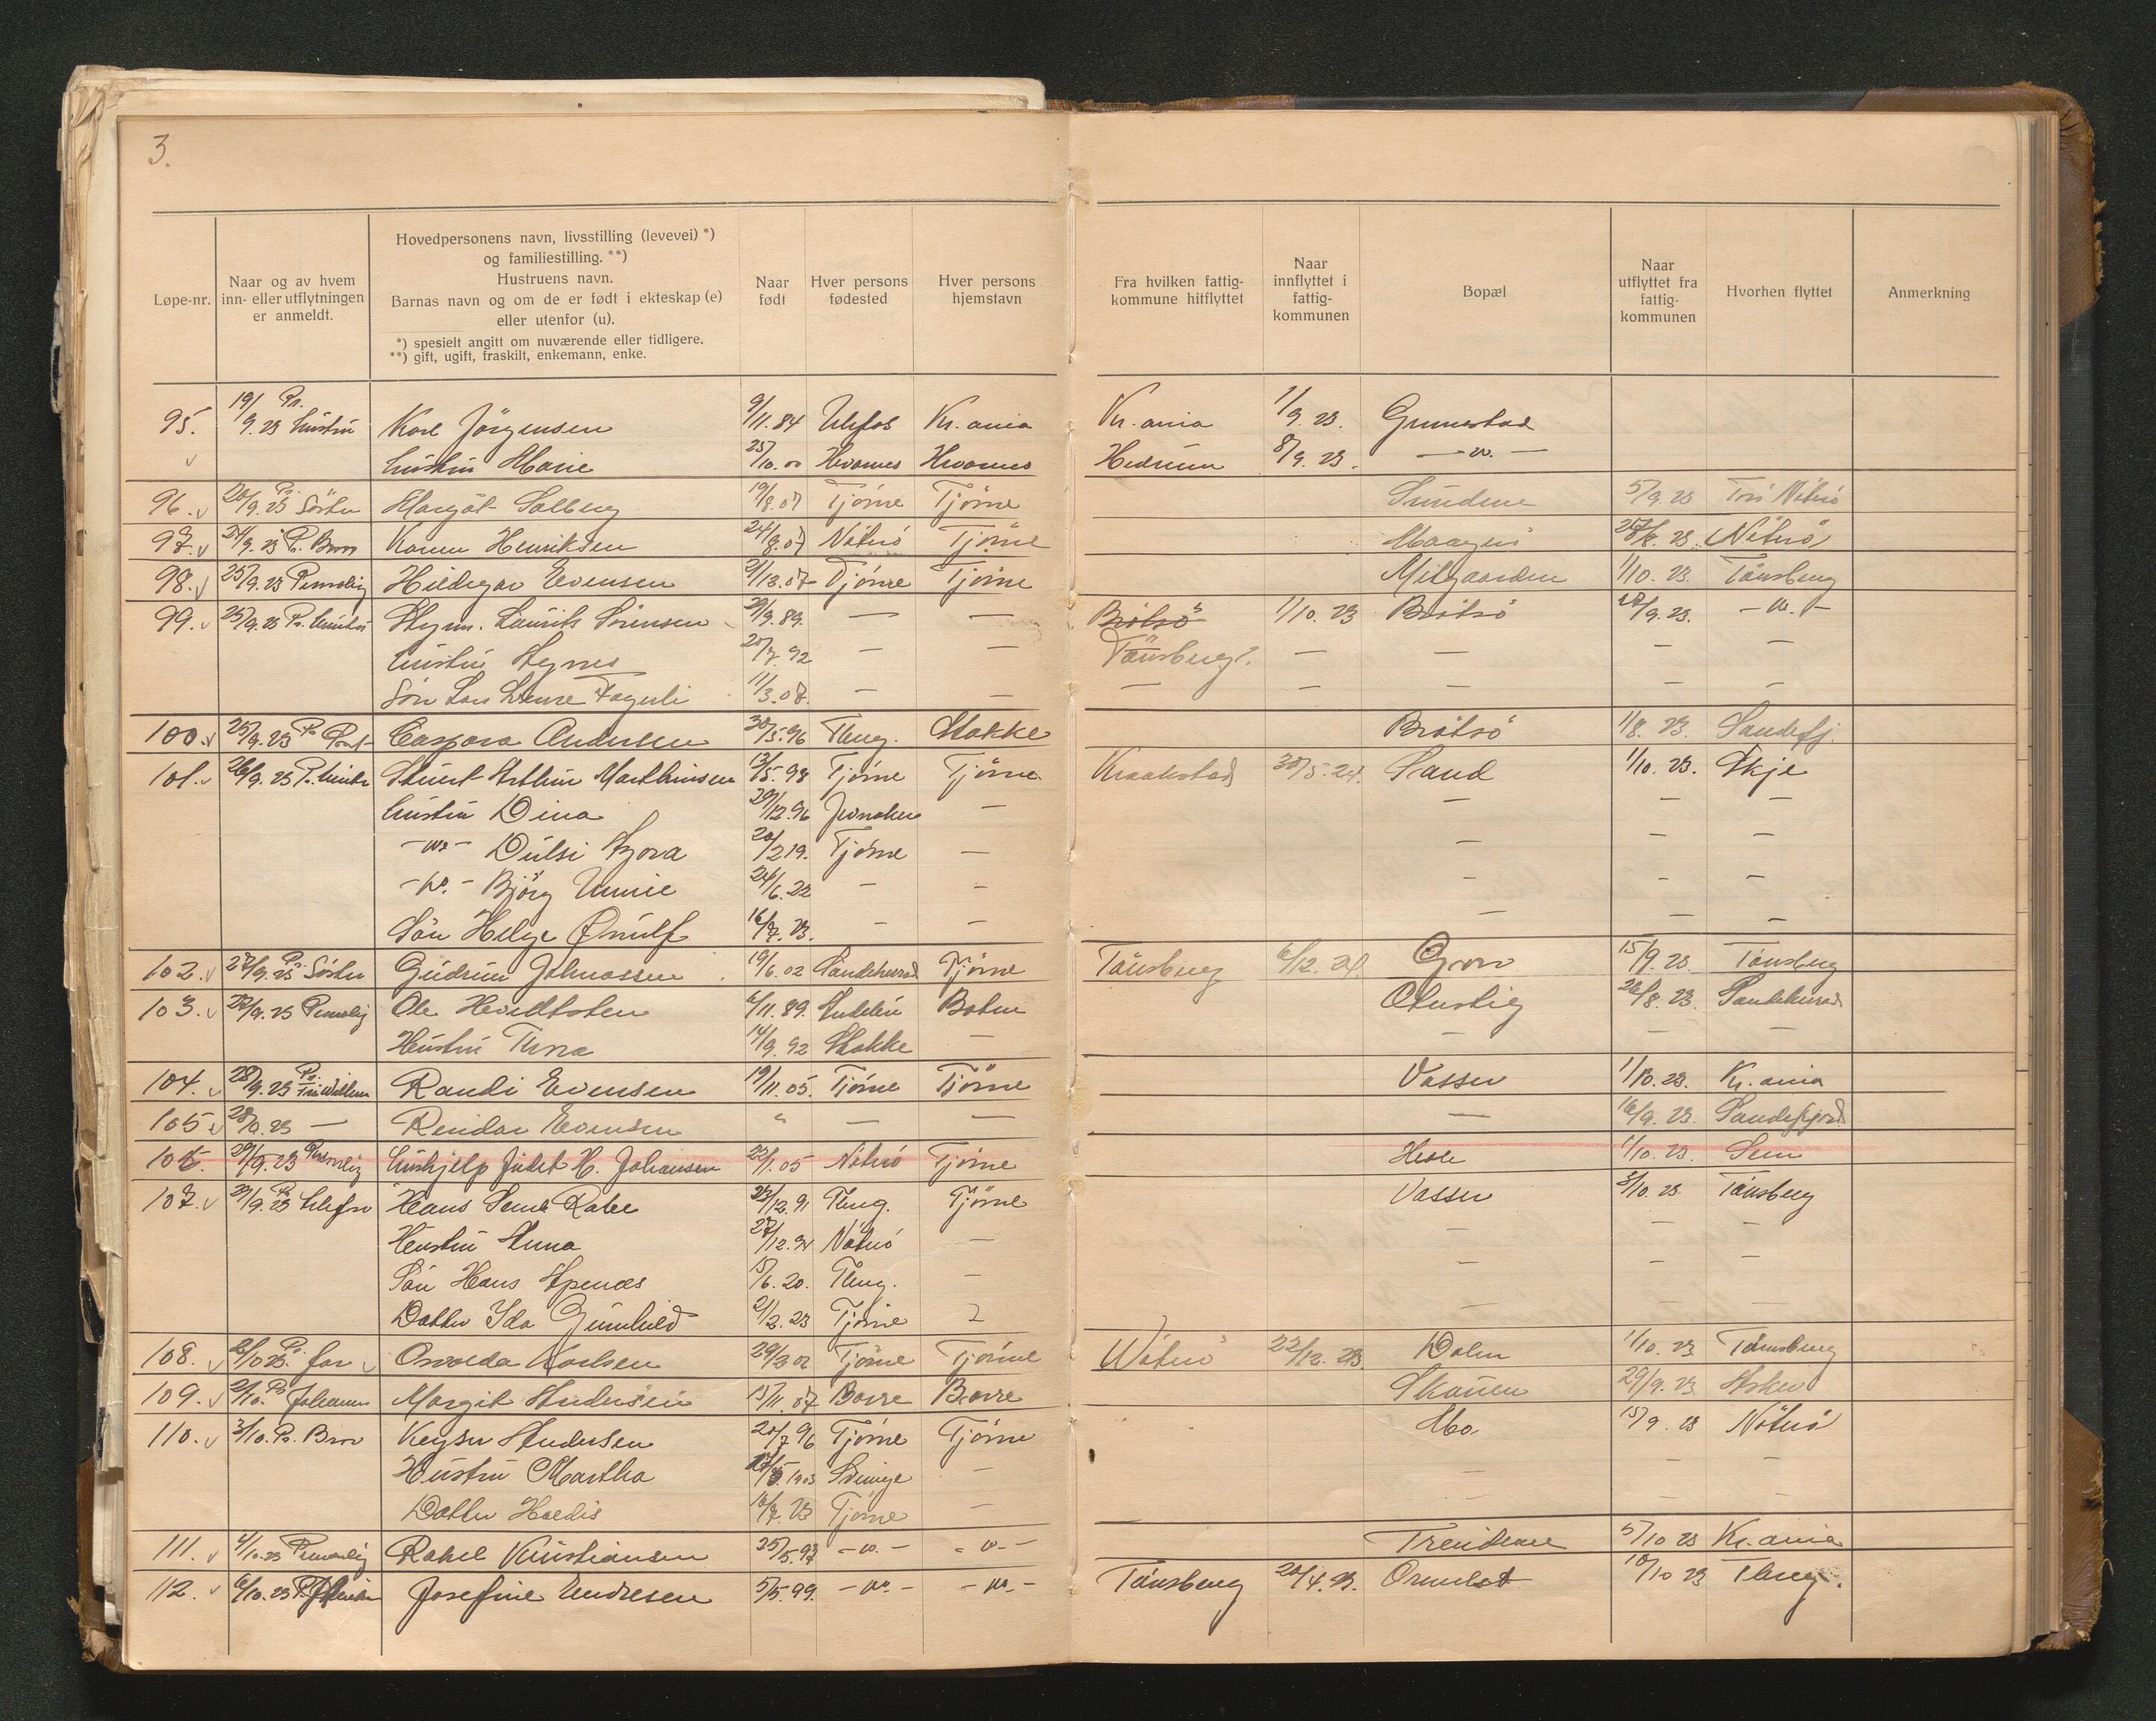 3.
Løpe-nr.
Naar og av hvem
inn- eller utflytningen
er anmeldt.
Hovedpersonens navn, livsstilling (levevei) *)
og familiestilling. **)
Hustruens navn.
Barnas navn og om de er født i ekteskap (e)
eller utenfor (u).
*) spesielt angitt om nuværende eller tidligere.
**) gift, ugift, fraskilt, enkemann, enke.
Naar
født
Hver persons
fødested
Hver persons
hjemstavn
Fra hvilken fattig-
kommune hitflyttet
Naar
innflyttet i
fattig-
kommunen
Bopæl
Naar
utflyttet fra
fattig-
kommunen
Hvorhen flyttet
Anmerkning
95. 19/9.23 Pr. hustru Karl Jörgensen 9/11.84 Ulefos Kr.ania Kr.ania 1/9.23. Grimestad
hustru Marie 25/10.00 Hvarnes Hvarnes Hedrum 8/9.23. — " —
96. 20/9.23 Pr. Söster Margot Solberg 19/8.07 Tjöme Tjöme Sundene 5/9.23 Nötrö
97. 24/9.23 P. Bror Karen Henriksen 24/8.07 Nötrö Tjöme 23 Nötrö
98. 25/9.23 Personlig Hildegar Evensen Tjöme Tjöme Midgaarden 1/10.23. Tönsberg
99. 25/9.23 Pr. hustru Laurits Sörensen 9.89. — — Brötsö 1/10.23 Brötsö 9.23. — " —
hustru Agnes 20/7.92 — — Tönsberg. — — — —
Sön Fagerli 11/3.08. — — — — — — —
100. 25/9.23 Pr Post Caspara Andersen 30/5.96 Tbrg. Stokke Brötsö 1/8.23. Sandefj.
101. 26/9.23 P. hustru Arthur Marthinsen 13/5.98 Tjöme Tjöme Kraakstad 30/5.24. Sand 1/10.23. Skje
hustru Dina 29/12.96 Jevnaker — — — —
— " — Dulsi 20/2 19. Tjöme — — — —
— " — Björg Unnie 24/6.22 — — — — —
Sön Helge Örnulf 16/7.23. — — — — —
102. 27/9.23 Pr. Söster Gudrun Johnassen 19/6.02 Sandeherred Tjöme Tönsberg 6/12.24. Grov 15/9.23 Tönsberg
103. 27/9.23 Personlig Ole 6/11.89. Botne 26/8.23. Sandeherred
Hustru 14/9.92 Stokke — — — —
104. 28/9.23 Pr. Randi Evensen 19/11.05. Tjöme Tjöme Vasser 1/10.23. Kr.ania
105 28/9.23 — Reidar Evensen " — — — 16/9.23. Sandefjord
106. 29/9.23 Personlig hushjelp Judit H. Johansen 22/1.05 Nötrö Tjöme Hesle 1/10.23. Sem
107. 9.23 Pr telefon Hans 23/12.91 Tbrg. Tjöme Vasser 3/10.23 Tönsberg
Hustru Anna 27/12.94 Nötrö — — — —
Sön Hans 15/6.20. Tbrg. — — — —
Datter Ida Gunhild 21/2.23 Tjöme — — —
108. 10.23. Pr. far Osvalda Karlsen 29/3 02 Tjöme Tjöme Nötrö 22/12.23 Dalen 1/10.23 Tönsberg
109. 2/10. Pr Johannes Margit Andersen 15/11.07 Borre Borre Skauen 29/9.23 Asker
110. 3/10. Pr. Bror Keyser Andersen 20/7 96 Tjöme Tjöme Mo. 15/9.23 Nötrö
Hustru Martha 1903 — — — —
Datter Hordis 16/7.23 Tjöme — — — —
111. 4/10.23 Personlig Rakel Kristiansen 25/5.97 — " — — " — Treidene 5/10 23 Kr.ania
112. 6/10.23 Josefine Andresen 5/5.99. — " — — " — Tönsberg 20/4.23. Ormelet 10/10 23 Tbrg.